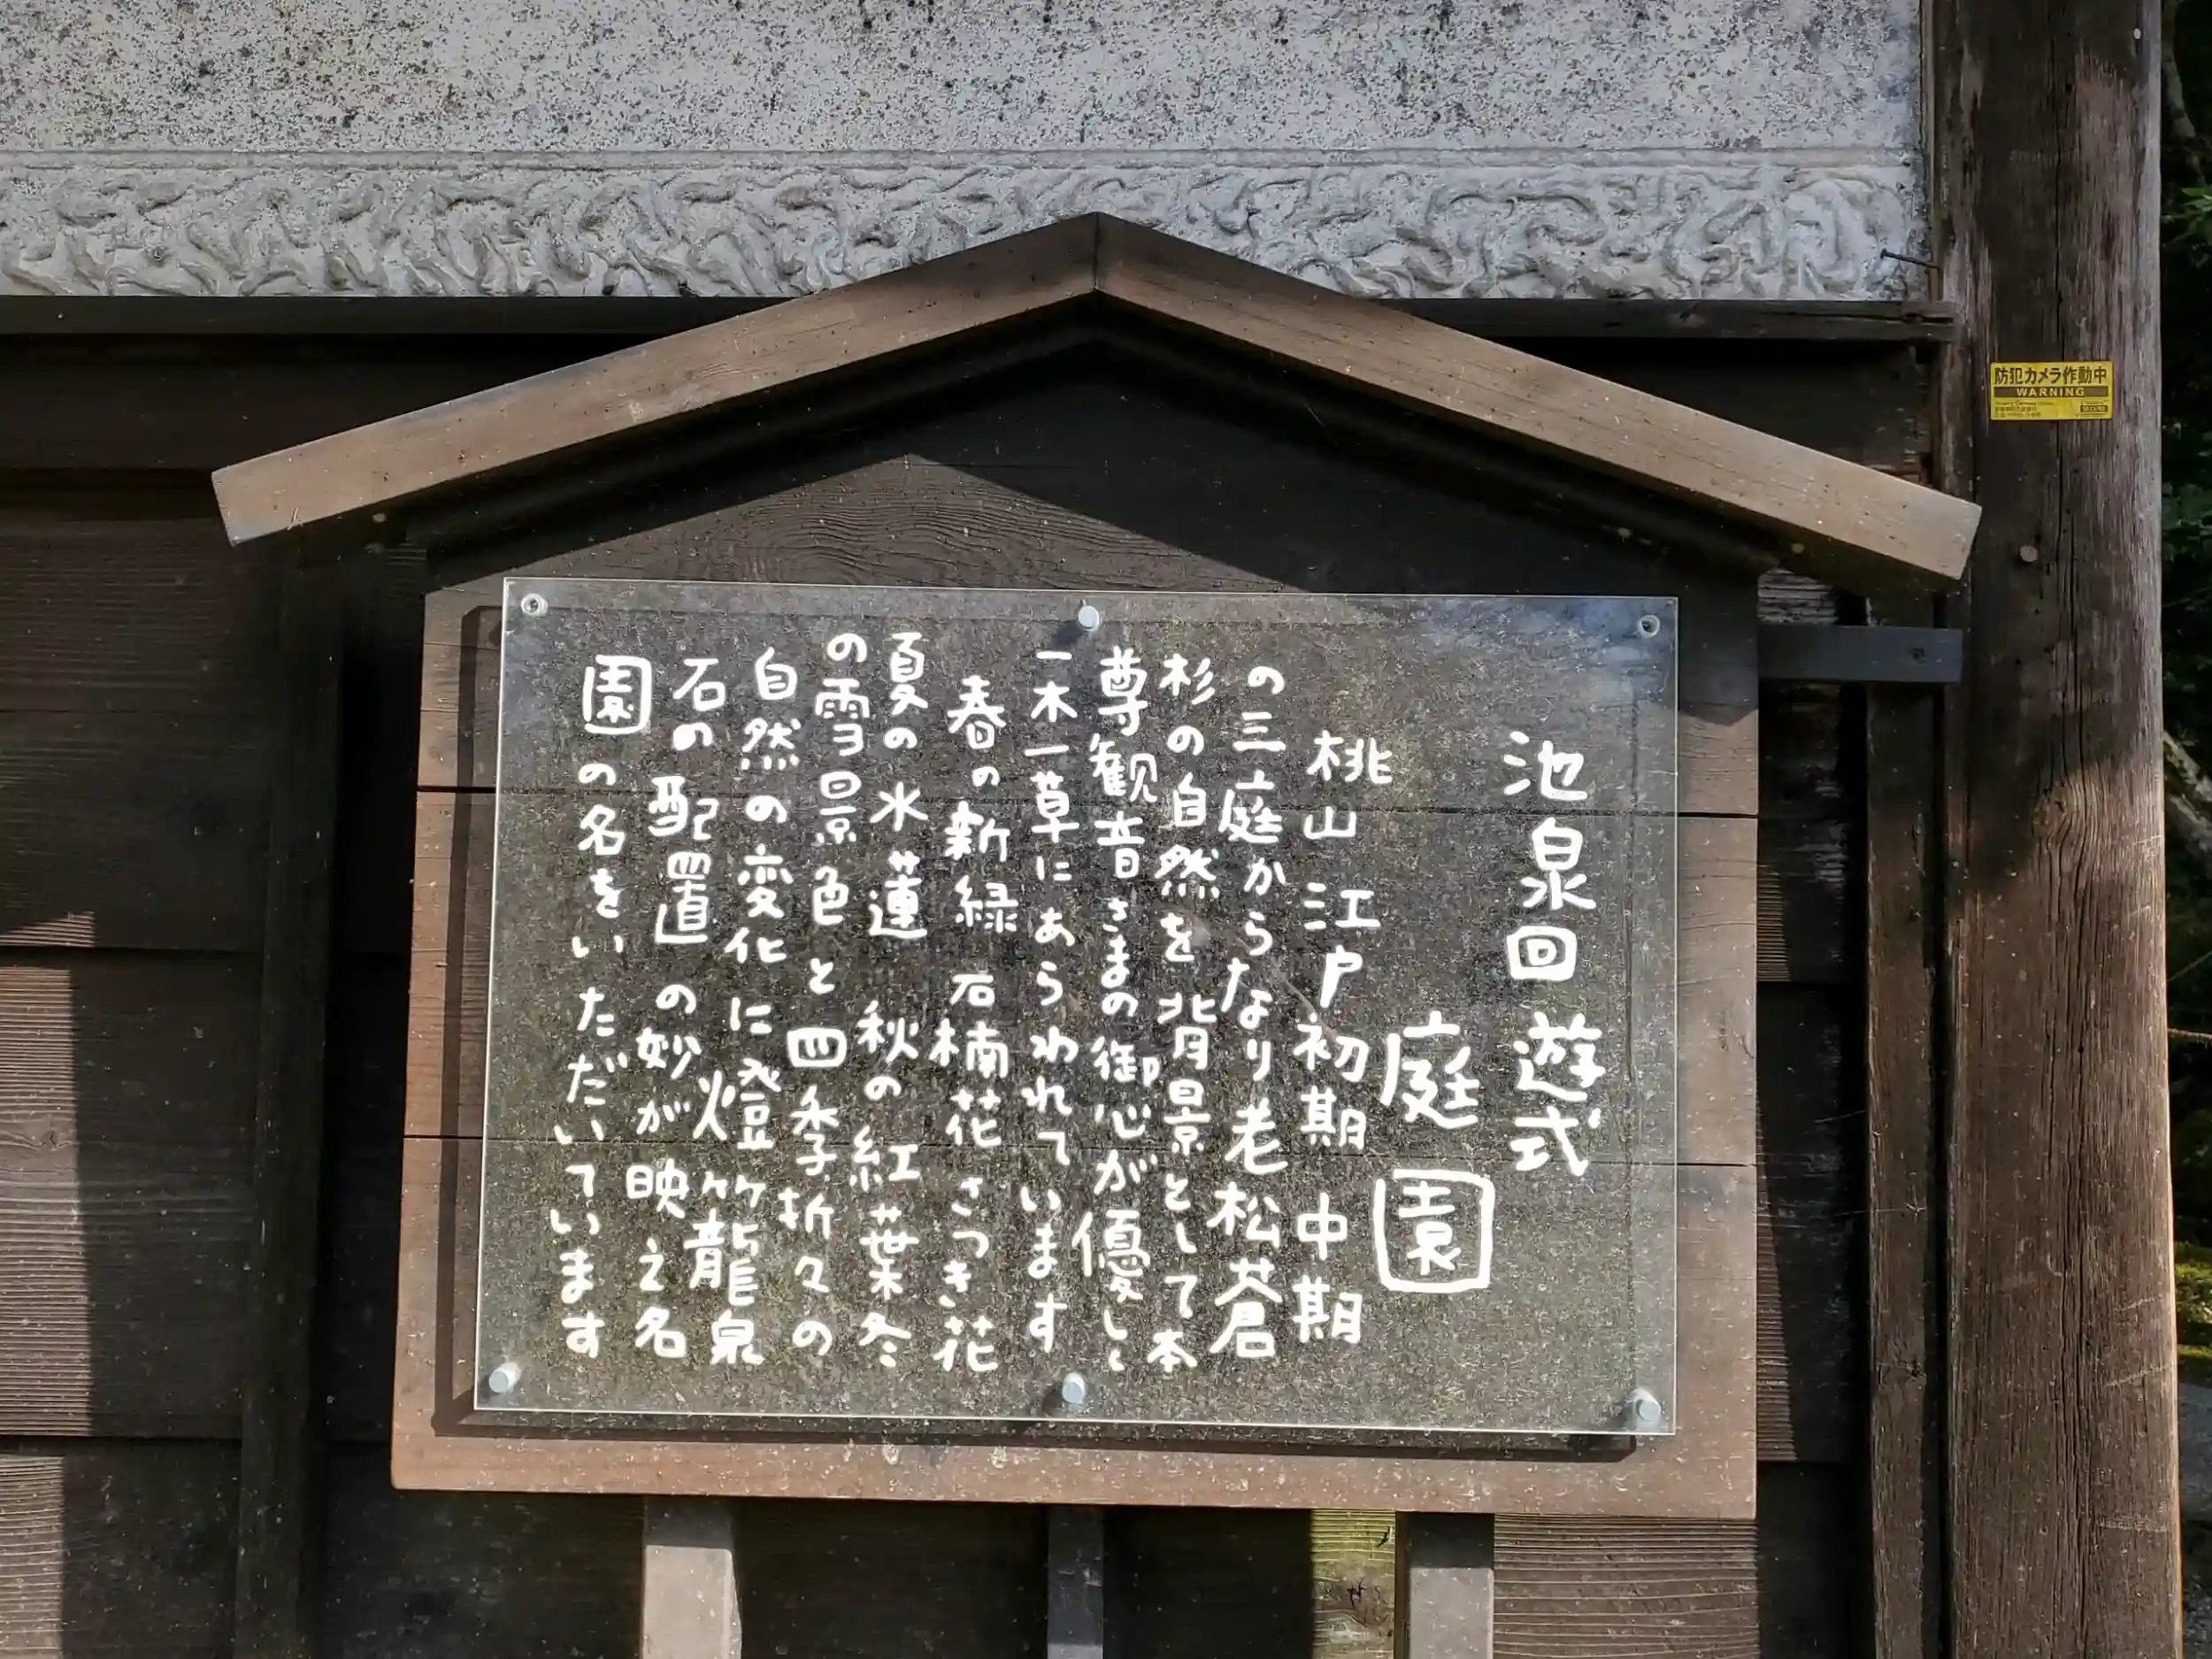 池泉回遊式
庭園
桃山 江戸初期 中期
の三庭からなり老松蒼
杉の自然を背景として本
尊観音さまの御心が優しく
一木一草にあらわれています
春の新緑 石楠花さつき花
夏の水蓮 秋の紅葉冬
の雪景色と四季折々の
自然の変化に燈竹龍泉
石の配置の妙が映え名
園の名をいただいています
防犯カメラ作動中
WARNING